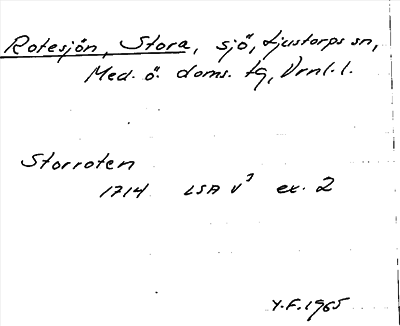 Rotesjön, Stora, sjö, Ljustorps sn,
Med. ö. doms. tg, Vrnl. l.
Storroten
1714 LSA V³ ex. 2
Y.F. 1965